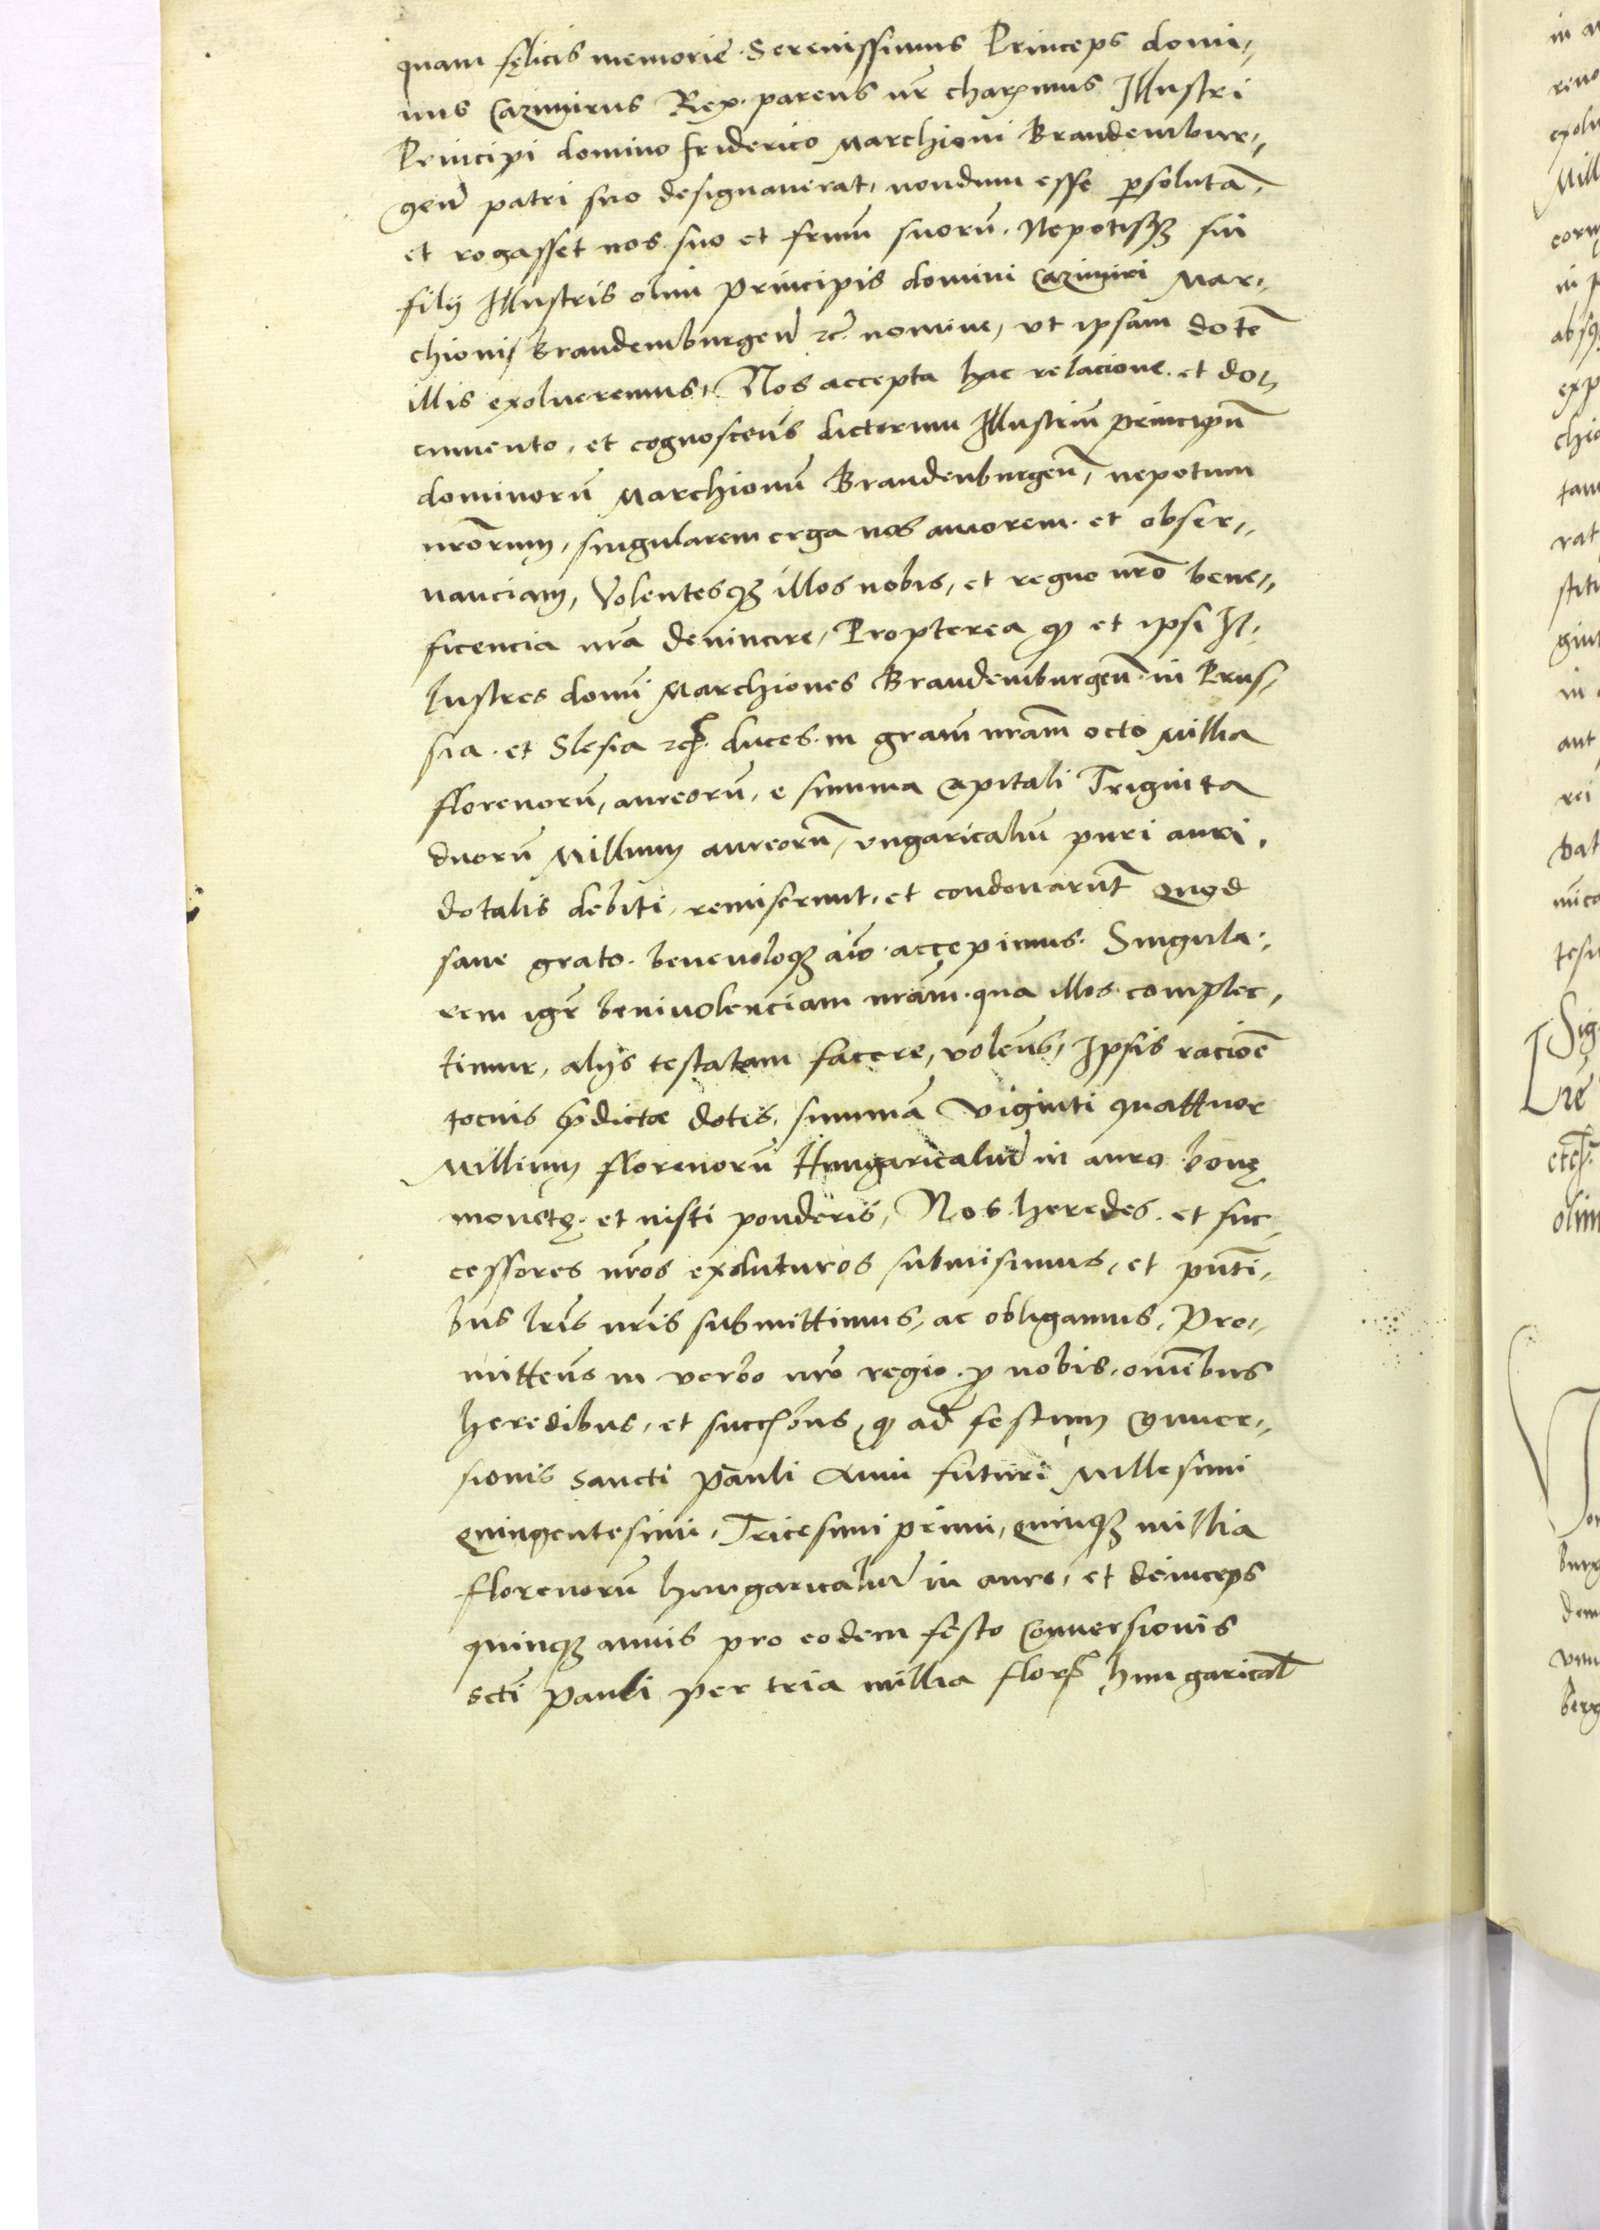 quam fęlicis memorie. Serenissimus Princeps domi-
nus Cazimirus Rex. parens nr̄ charissimus Illustri
Principi domino friderico Marchioni Brandembur-
geñ patri suo designauerat, nondum esse psolutā,
et rogasset nos suo et frūm suorū. Nepotisqꝫ sui
filij Illustris olim principis domini Cazimiri Mar-
chionis Brandemburgeñ ꝛc̄. nomine, vt ipsam dotē
illis exolueremus, Nos accepta hac relacione. et do-
cumento, et cognosceñs dictorum Illustriū principū
dominorū Marchionū Brandenburgeñ, nepotum
nrōrum, singularem erga nos amorem. et obser-
uanciam, Volentesqꝫ illos nobis, et regno nrō bene-
ficencia nrā deuincire, Propterea qȝ et ipsi Il-
lustres domī Marchiones Brandemburgeñ. in Prus-
sia. et Slesia ꝛc̄. duces. in grām nrām octo Millia
florenorū, aureorū, e summa capitali Triginta
duorū Millium aureorū, vngaricaliū puri auri,
dotalis debiti, remiserunt, et condonarūt Quod
sane grato. beneuoloqꝫ aīo. accepimus. Singula-
rem igr̄ beniuolenciam nrām. qua illos. complec-
timur, alijs testatam facere, voleñs, Ipsis racioē
tocius p̄dictæ dotis, summā viginti quattuor
Millium florenorū Hungaricaliū in auro. bonę
monetę. et iusti ponderis, Nos heredes. et suc-
cessores nrōs exoluturos submisimus, et pn̄ti-
bus lrīs nrīs submittimus, ac obligamus, Pro-
mitteñs in verbo nrō regio. ꝓ nobis, om̄ibus
heredibus, et successoribus, qȝ ad festum Conuer-
sionis Sancti Pauli Anni futuri Millesimi
Quingentesimi, Tricesimi primi, quinqꝫ millia
florenorū hungaricaliū in auro, et deinceps
quinqꝫ annis pro eodem festo Conuersionis
scti Pauli per tria millia flor̄ hungarical̄